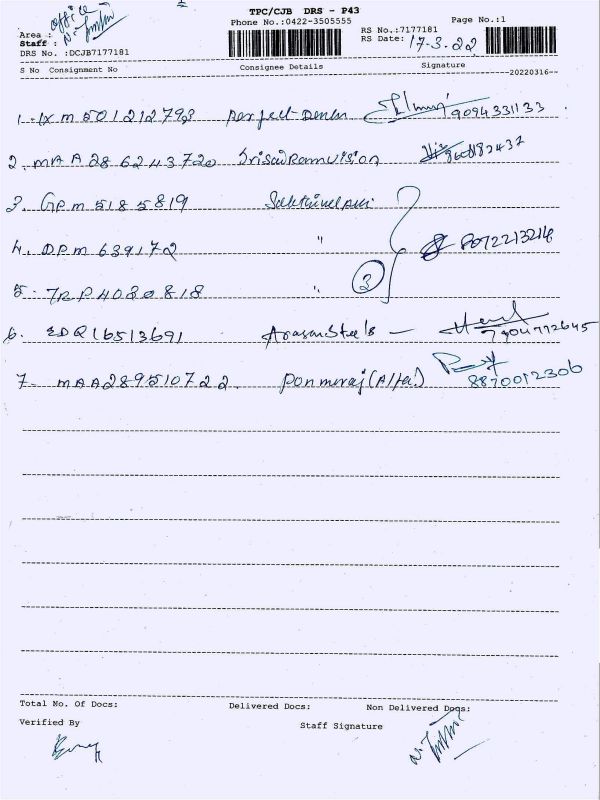 TPC/CJB DRS - P43
Phone No.:0422-3505555
Page No.:1
Area : office
Staff :
RS No.:7177181
RS Date: 17-3-22
DRS No. :DCJB7177181
S No Consignment No Consignee Details Signature
20220316
1. IXM501212793 perfect Dental 9094331133
2. MAA286243720 SrisaiRamvision
3. GPM5185819 Sakthivel
4. DPM639172 " 8072213214
5. TRP4030818 " 3
6. EDQ16513691 Arasan Steels - 7904772645
7. MAA289510722 ponmuraj 8870012306
Total No. Of Docs: Delivered Docs: Non Delivered Docs:
Verified By Staff Signature